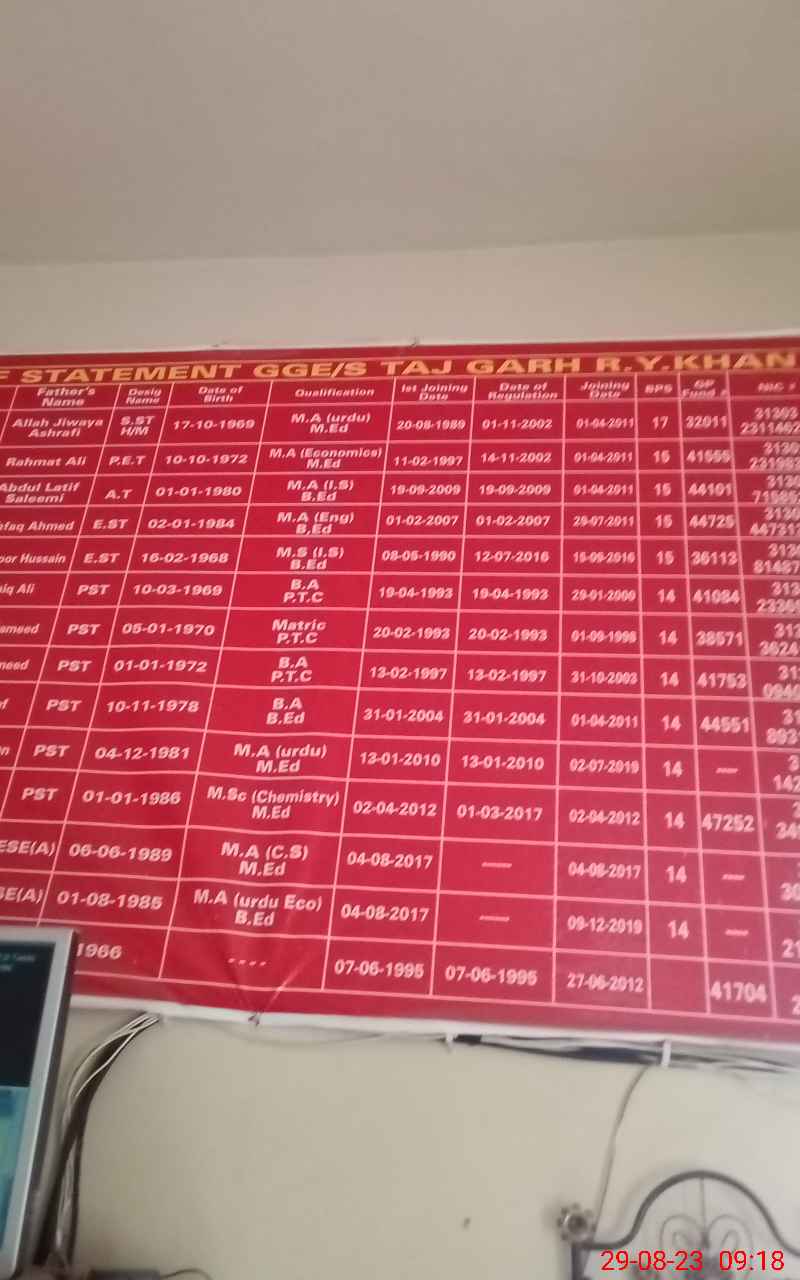 F STATEMENT GGE/S TAJ GARH R.Y.KHAN
Father's Name Desig Name Date of Birth Qualification Ist Joining Date Date of Regulation Joining Date BPS GP Fund # NIC #
Allah Jiwaya Ashrafi S.ST H/M 17-10-1969 M.A (urdu) M.Ed 20-08-1989 01-11-2002 01-04-2011 17 32011 31303 2311462
Rahmat Ali P.E.T 10-10-1972 M.A (Economics) M.Ed 11-02-1997 14-11-2002 01-04-2011 15 41555 3130
Abdul Latif Saleemi A.T 01-01-1980 M.A (I.S) B.Ed 19-09-2009 19-09-2009 01-04-2011 15 44101 3130
afaq Ahmed E.ST 02-01-1984 M.A (Eng) B.Ed 01-02-2007 01-02-2007 29-07-2011 15 44725 3130
oor Hussain E.ST 16-02-1968 M.S (I.S) B.Ed 08-05-1990 12-07-2016 15 36113 313 81487
iq Ali PST 10-03-1969 B.A P.T.C 19-04-1993 19-04-1993 29-01-2000 14 41084 313
ameed PST 05-01-1970 Matric P.T.C 20-02-1993 20-02-1993 01-09-1998 14 38571 313 3624
meed PST 01-01-1972 B.A P.T.C 13-02-1997 13-02-1997 31-10-2003 14 41753 31 0940
of PST 10-11-1978 B.A B.Ed 31-01-2004 31-01-2004 01-04-2011 14 44551 31 893
n PST 04-12-1981 M.A (urdu) M.Ed 13-01-2010 13-01-2010 02-07-2019 14 — 3 142
PST 01-01-1986 M.Sc (Chemistry) M.Ed 02-04-2012 01-03-2017 02-04-2012 14 47252 34
ESE(A) 06-06-1989 M.A (C.S) M.Ed 04-08-2017 — 04-08-2017 14 — 30
SE(A) 01-08-1985 M.A (urdu Eco) B.Ed 04-08-2017 — 09-12-2019 14 — 21
1966 ---- 07-06-1995 07-06-1995 27-06-2012 41704 2
29-08-23 09:18